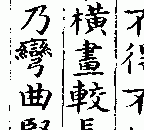 不得不
橫畫較長
乃彎曲